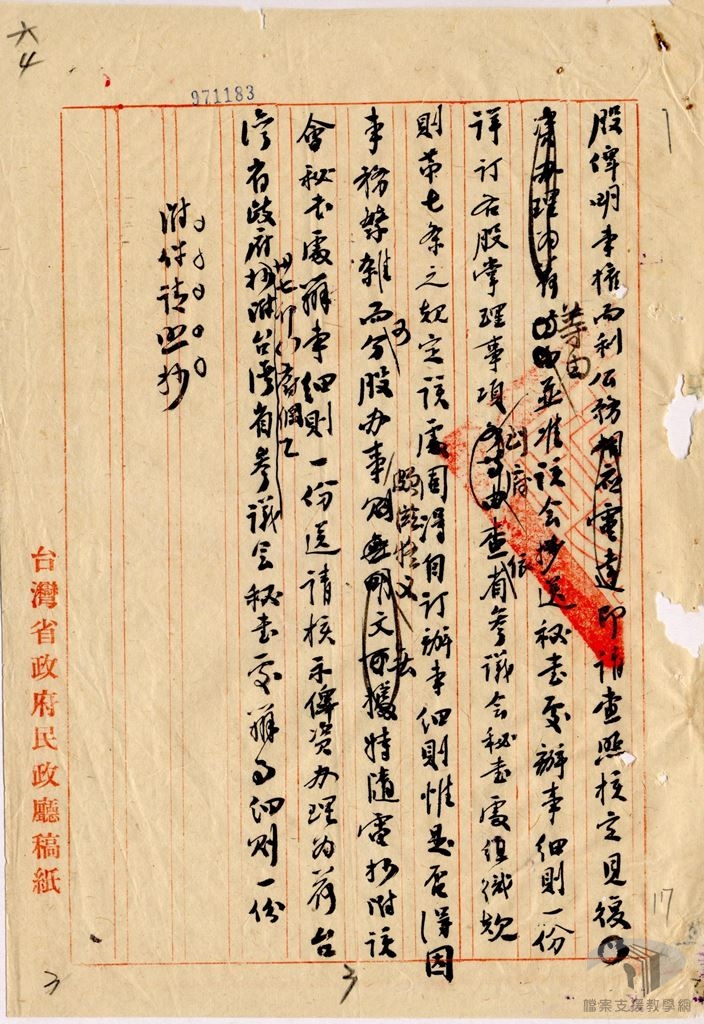 六
4
971183
股俾明事權而利公務相應電達即請查照核定見復
辦理為荷等由並准該会抄送秘書處辦事細則一份
詳訂各股掌理事項到府查依省參議会秘書處組織規
則第七条之規定該處固得自訂辦事細則惟是否得因
事務繁雜而分股办事則無明文可獲頗滋疑义特隨電抄附該
會秘书處辦事細則一份送請核示俾資办理為荷台
湾省政府抄附台湾省參議会秘書处辦事細則一份
附件請照抄
台灣省政府民政廳稿紙
17
檔案支援教學網